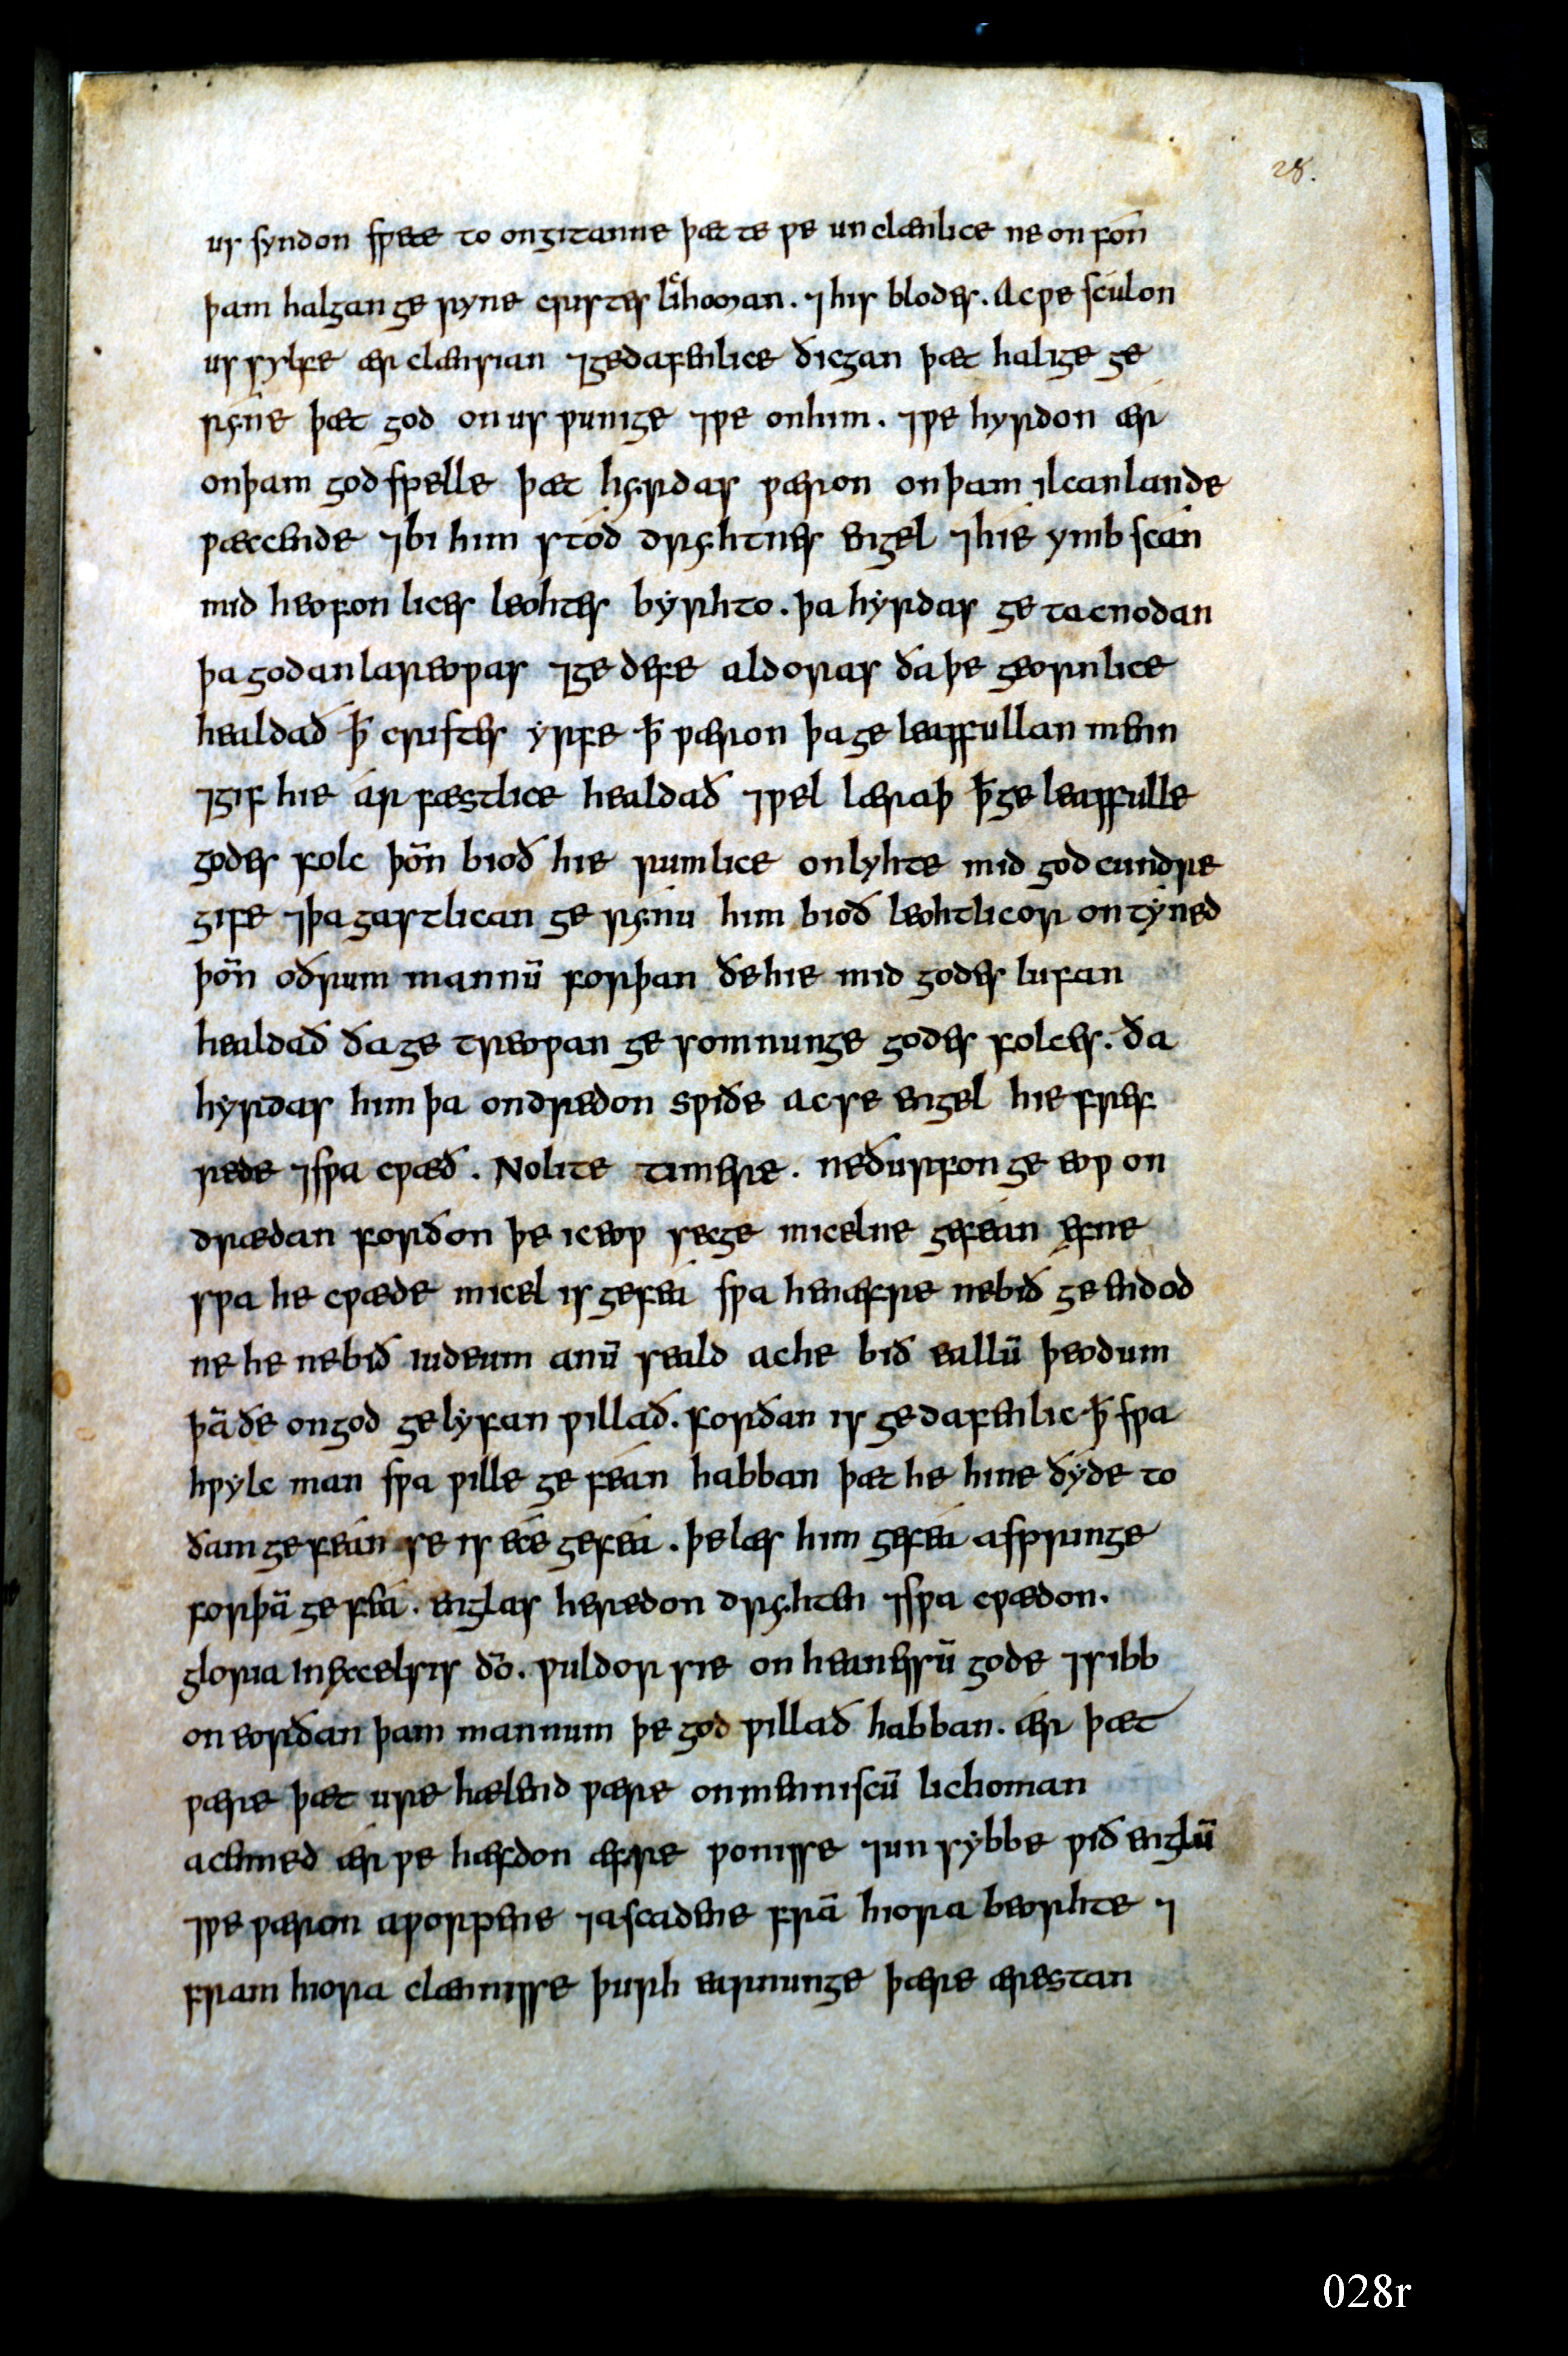 28.
us syndon swæe to ongitanne þæt te ƿe unclænlice ne onfón
þam halgan geryne cristes licho̅man. ⁊ his blodes. Ac ƿe sculon
us sylfe ær clænsian ⁊gedafenlice ðicgan þæt halige ge
ryne þæt god on us ƿunige ⁊ƿe onhim. ⁊ƿe hyrdon ær
onþam godspelle þæt hyrdas ƿæron onþam ilcan lande
ƿæccende ⁊bi him stód dryhtnes engel ⁊hie ymb scán
mid heofon lices leohtes byrhto. þa hyrdas ge tacnodan
þa godan lareoƿas ⁊ge defe aldoras ða þe geornlice
healdað ꝥ cristes yrfe ꝥ ƿæron þa ge leaffullan menn
⁊gif hie ár fæstlice healdað ⁊ƿel læraþ ꝥge leaffulle
godes folc þon̄ bioð hie rumlice onlyhte mid god cundre
gife ⁊þa gastlican ge rynu him bioð leohtlicor ontyned
þon̄ oðrum mannū forþan ðe hie mid godes lufan
healdað ða ge treoƿan ge somnunge godes folces. ða
hyrdas him þa ondredon sƿiðe ac se engel hie fref
rede ⁊sƿa cƿæð. Nolite timere. ne ðurfon ge eoƿ on
drædan forðon þe ic eoƿ secge micelne gefeán efne
sƿa he cƿæde micel is gefea sƿa he næfre ne bið ge endod
ne he ne bið iudeum anū seald ac he bið eallū þeodum
þā ðe on god gelyfan ƿillað. forðan is ge dafenlic ꝥ sƿa
hƿylc man sƿa ƿille ge feán habban þæt he hine ðyde to
ðam gefeán se is ece gefea. þe læs him gefea aspringe
forþā ge fea. englas heredon dryhten ⁊sƿa cƿædon.
gloria in excelsis dō. ƿuldor sie on heanessū gode ⁊sibb
on eorðan þam mannum þe god ƿillað habban. ǽr þæt
ƿære þæt ure hælend ƿære on menniscū lichoman
acenned ær ƿe hæfdon æfre ƿonisse ⁊un sybbe ƿið englū
⁊ƿe ƿæron aƿorpene ⁊ascadene frā hiora beorhte ⁊
fram hiora clænnisse þurh earnunge þære ærestan
028r